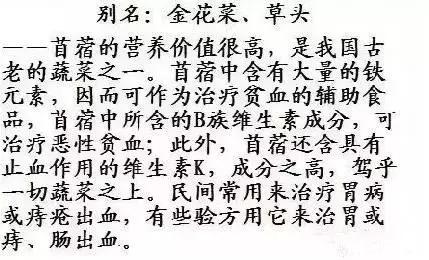 别名：金花菜、草头
——苜蓿的营养价值很高，是我国古
老的蔬菜之一。苜蓿中含有大量的铁
元素，因而可作为治疗贫血的辅助食
品，苜蓿中所含的B族维生素成分，可
治疗恶性贫血；此外，苜蓿还含具有
止血作用的维生素K，成分之高，驾乎
一切蔬菜之上。民间常用来治疗胃病
或痔疮出血，有些验方用它来治胃或
痔、肠出血。